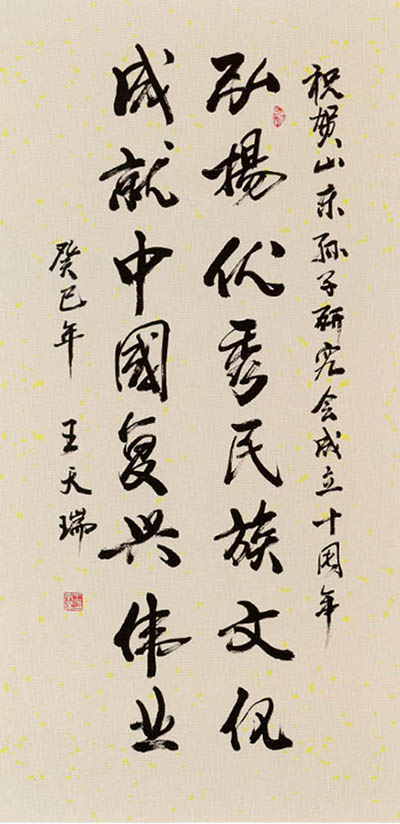 祝贺山东孫子研究会成立十周年
弘揚优秀民族文化
成就中國复兴伟业
癸巳年 王天瑞